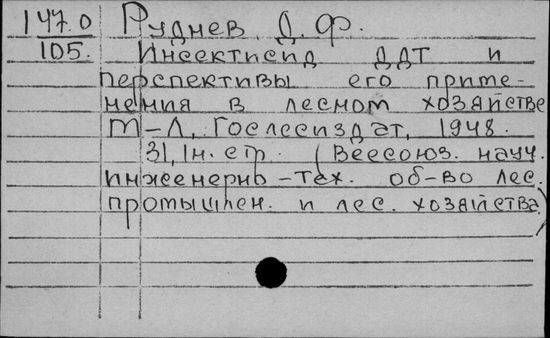 147.0 Руднев, Д. Ф.
105. Инсектисид ДДТ и
перспективы его приме-
нения в лесном хозяйстве
М-Л, Гослесиздат, 1948.
31, 1н. стр. (Всесоюз. науч.
инженерно-тех. об-во лес.
промышлен. и лес. хозяйства)